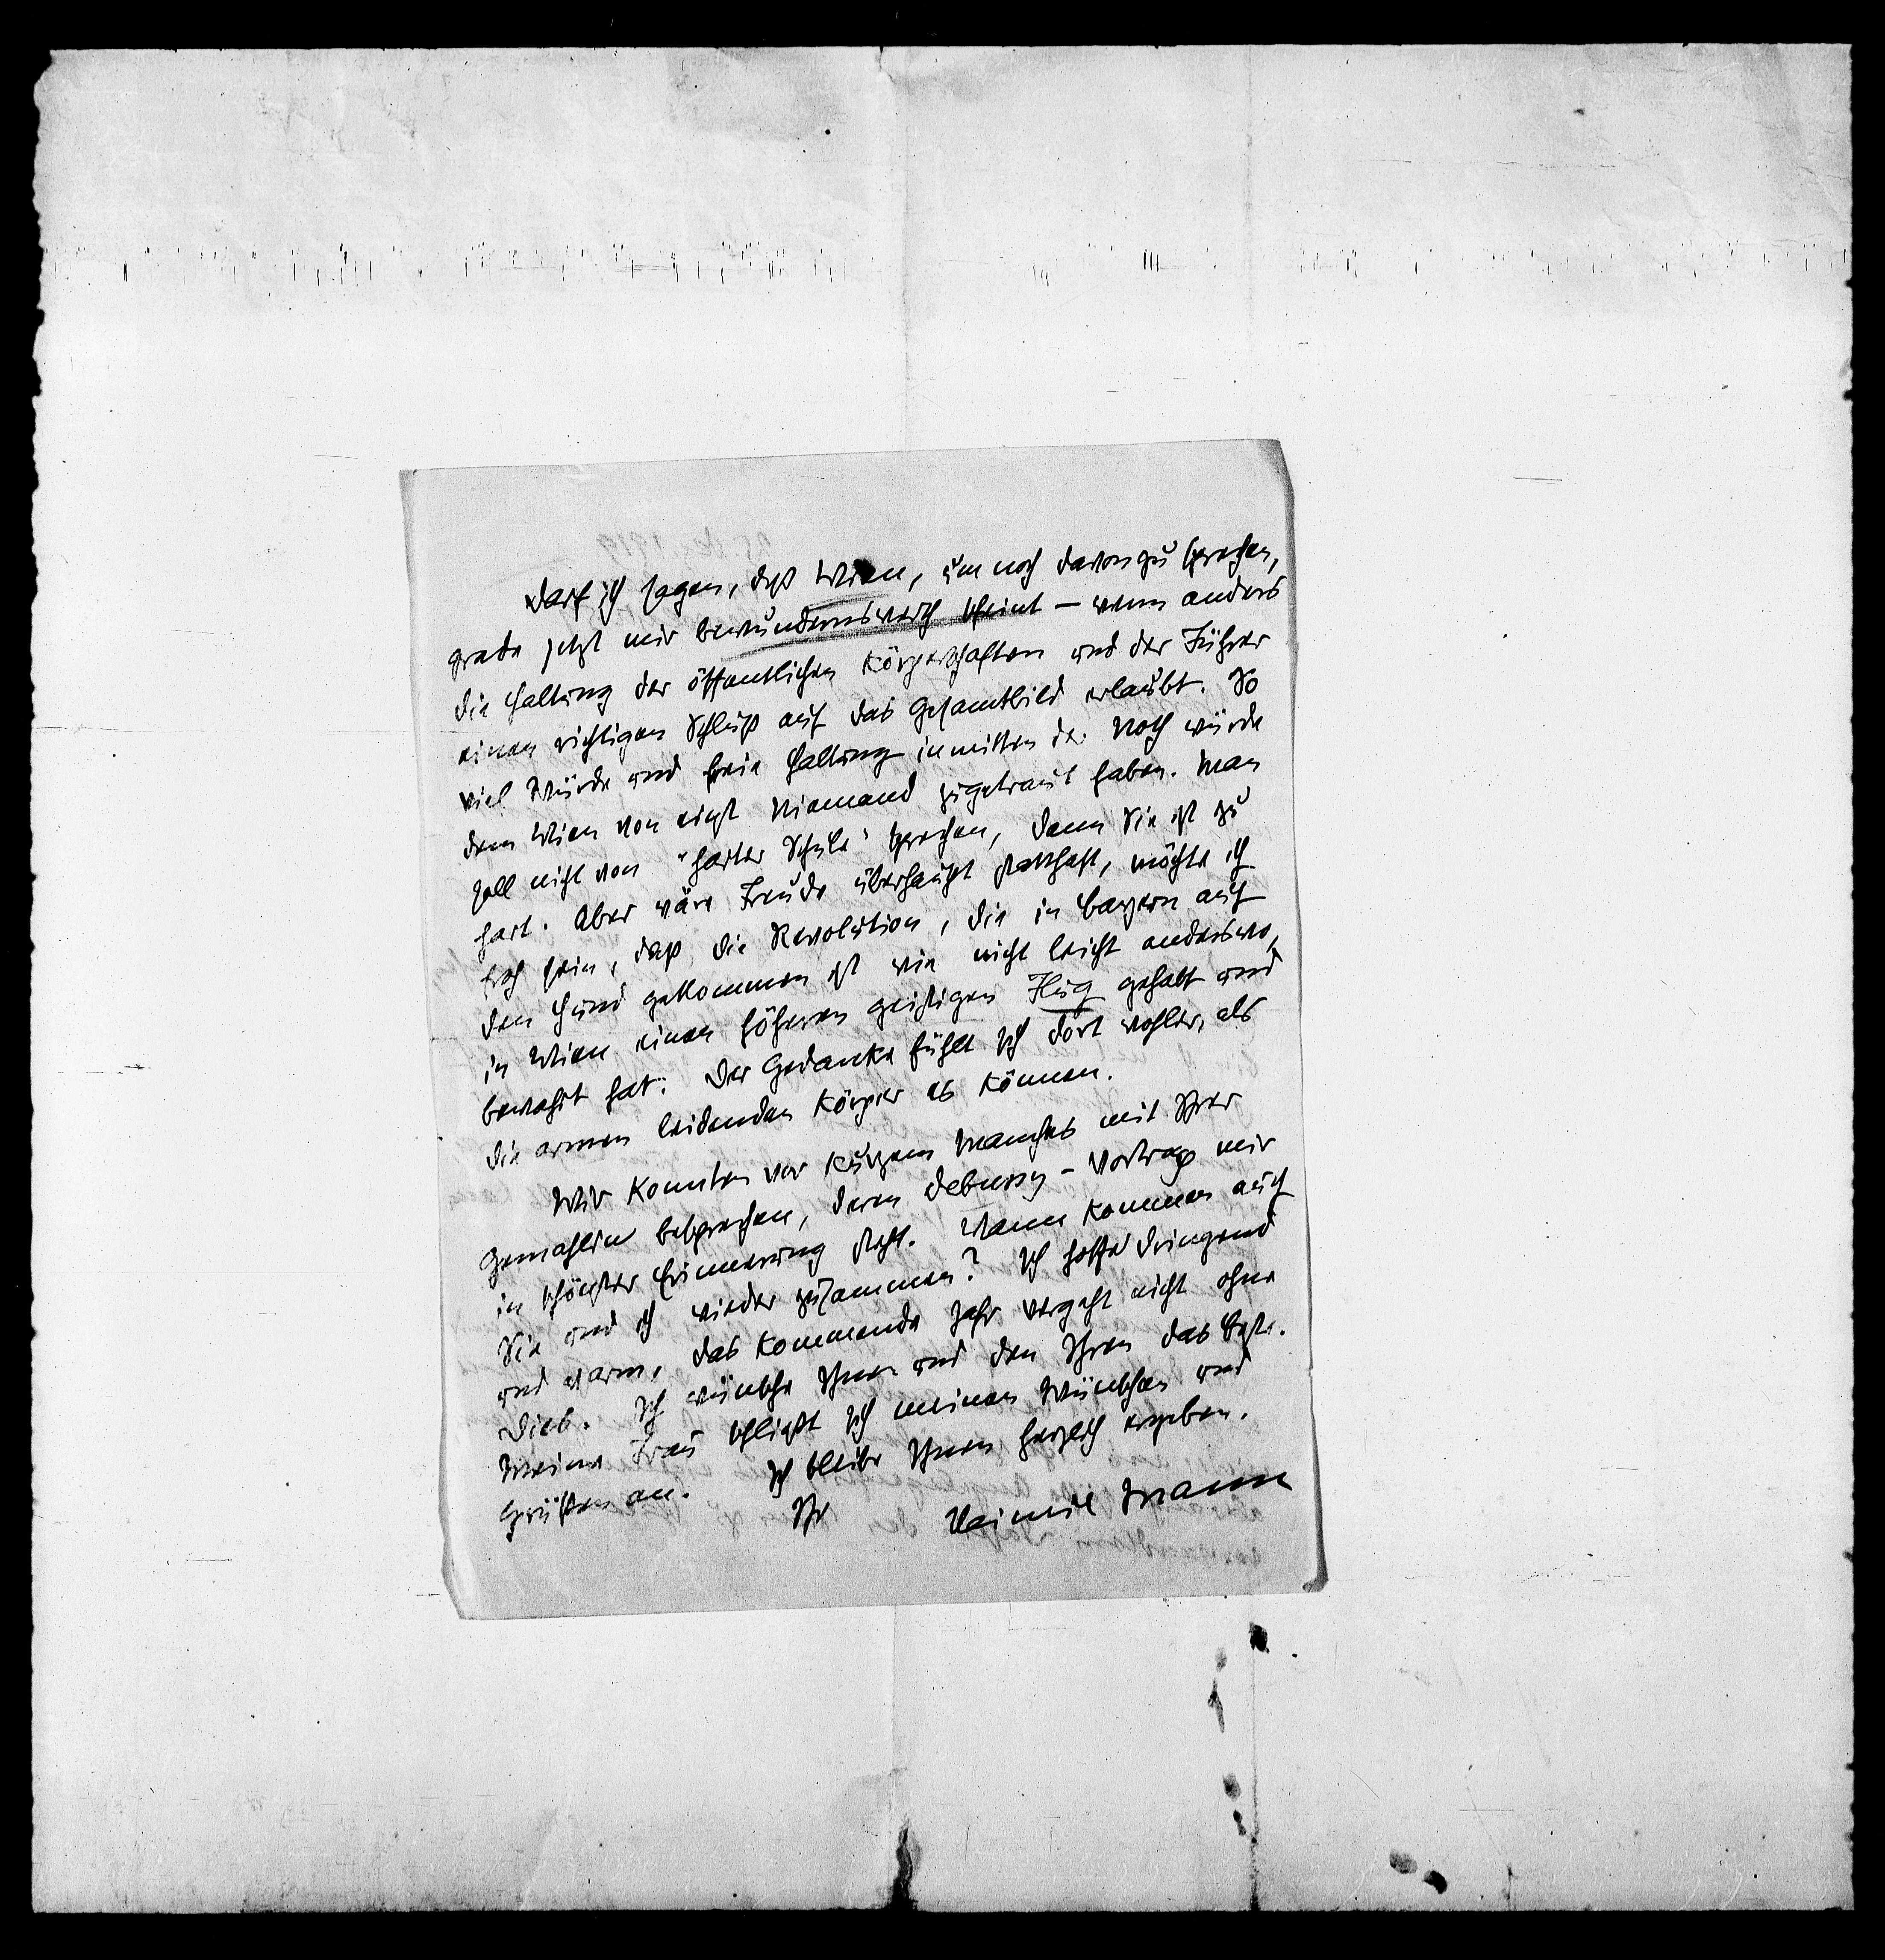 Darf ich sagen, daß Wien, um noch davon zu sprechen,
grade jetzt mir bewundernswerth scheint – wenn anders
die Haltung der öffentlichen Körperschaften und der Führer
einen richtigen Schluß auf das Gesamtbild erlaubt. So
viel Würde und freie Haltung inmitten der Noth würde
dem Wien von einst Niemand zugetraut haben. Man
soll nicht von "harter Schule" sprechen, denn sie ist zu
hart. Aber wäre Freude überhaupt statthaft, möchte ich
froh sein, daß die Revolution, die in Bayern auf
den Hund gekommen ist wie nicht leicht anderswo,
in Wien einen höheren geistigen Flug gehabt und
bewahrt hat. Der Gedanke fühlt sich dort wohler, als
die armen leidenden Körper es können.
Wir konnten vor Kurzem Manches mit Ihrer
Gemahlin besprechen, deren Debussy-Vortrag mir
in schönster Erinnerung steht. Wann kommen auch
Sie und ich wieder zusammen? Ich hoffe dringend
und warm, das kommende Jahr vergeht nicht ohne
Dies. Ich wünsche Ihnen und den Ihren das Beste.
Meine Frau schließt sich meinen Wünschen und
Grüßen an. Ich bleibe Ihnen herzlich ergeben.
Ihr Heinrich Mann